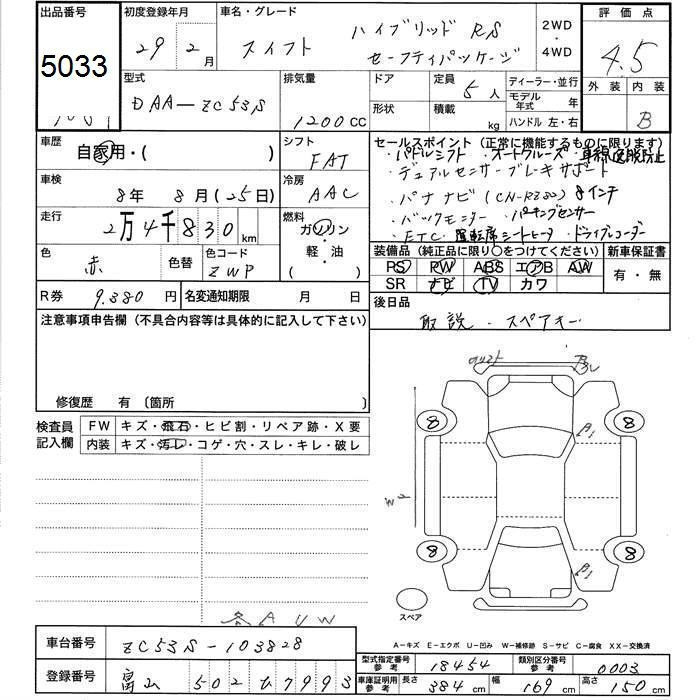 出品番号 初度登録年月 車名・グレード 2WD・4WD 評価点
5033 29年 2月 スイフト ハイブリッド RS セーフティパッケージ 4.5
型式 排気量 ドア 定員 ディーラー・並行 外装 内装
DAA-ZC53S 1200CC 5人 モデル年式 年 B
形状 積載 kg ハンドル 左・右
車歴 自家用・( ) シフト FAT セールスポイント (正常に機能するものに限ります)
・パドルシフト ・オートクルーズ ・車線逸脱防止
・デュアルセンサーブレーキサポート
車検 8年 8月(25日) 冷房 AAC ・パナナビ 8インチ
・バックモニター ・パーキングセンサー
走行 2万4千830km 燃料 ガソリン・軽・油・( )
・ETC ・運転席シートヒータ ・ドライブレコーダー
色 赤 色替 色コード ZWP
装備品 (純正品に限り○をつけてください) 新車保証書
PS PW ABS エアB AW 有・無
SR ナビ TV カワ
R券 9,380円 名変通期限 月 日 後日品
取説・スペアキー
注意事項申告欄 (不具合内容等は具体的に記入して下さい)
修復歴 有 〔箇所 〕
検査員記入欄 FW キズ・飛石・ヒビ割・リペア跡・X要
内装 キズ・汚レ・コゲ・穴・スレ・キレ・破レ
8 8
8 8
スペア
各AUW
A-キズ E-エクボ U-凹み W-補修跡 S-サビ C-腐食 XX-交換済
車台番号 ZC53S-103828 型式指定番号 参考 18454 類別区分番号 参考 0003
登録番号 富山 502 む 7993 車庫証明用 参考 長さ 384cm 幅 169cm 高さ 150cm